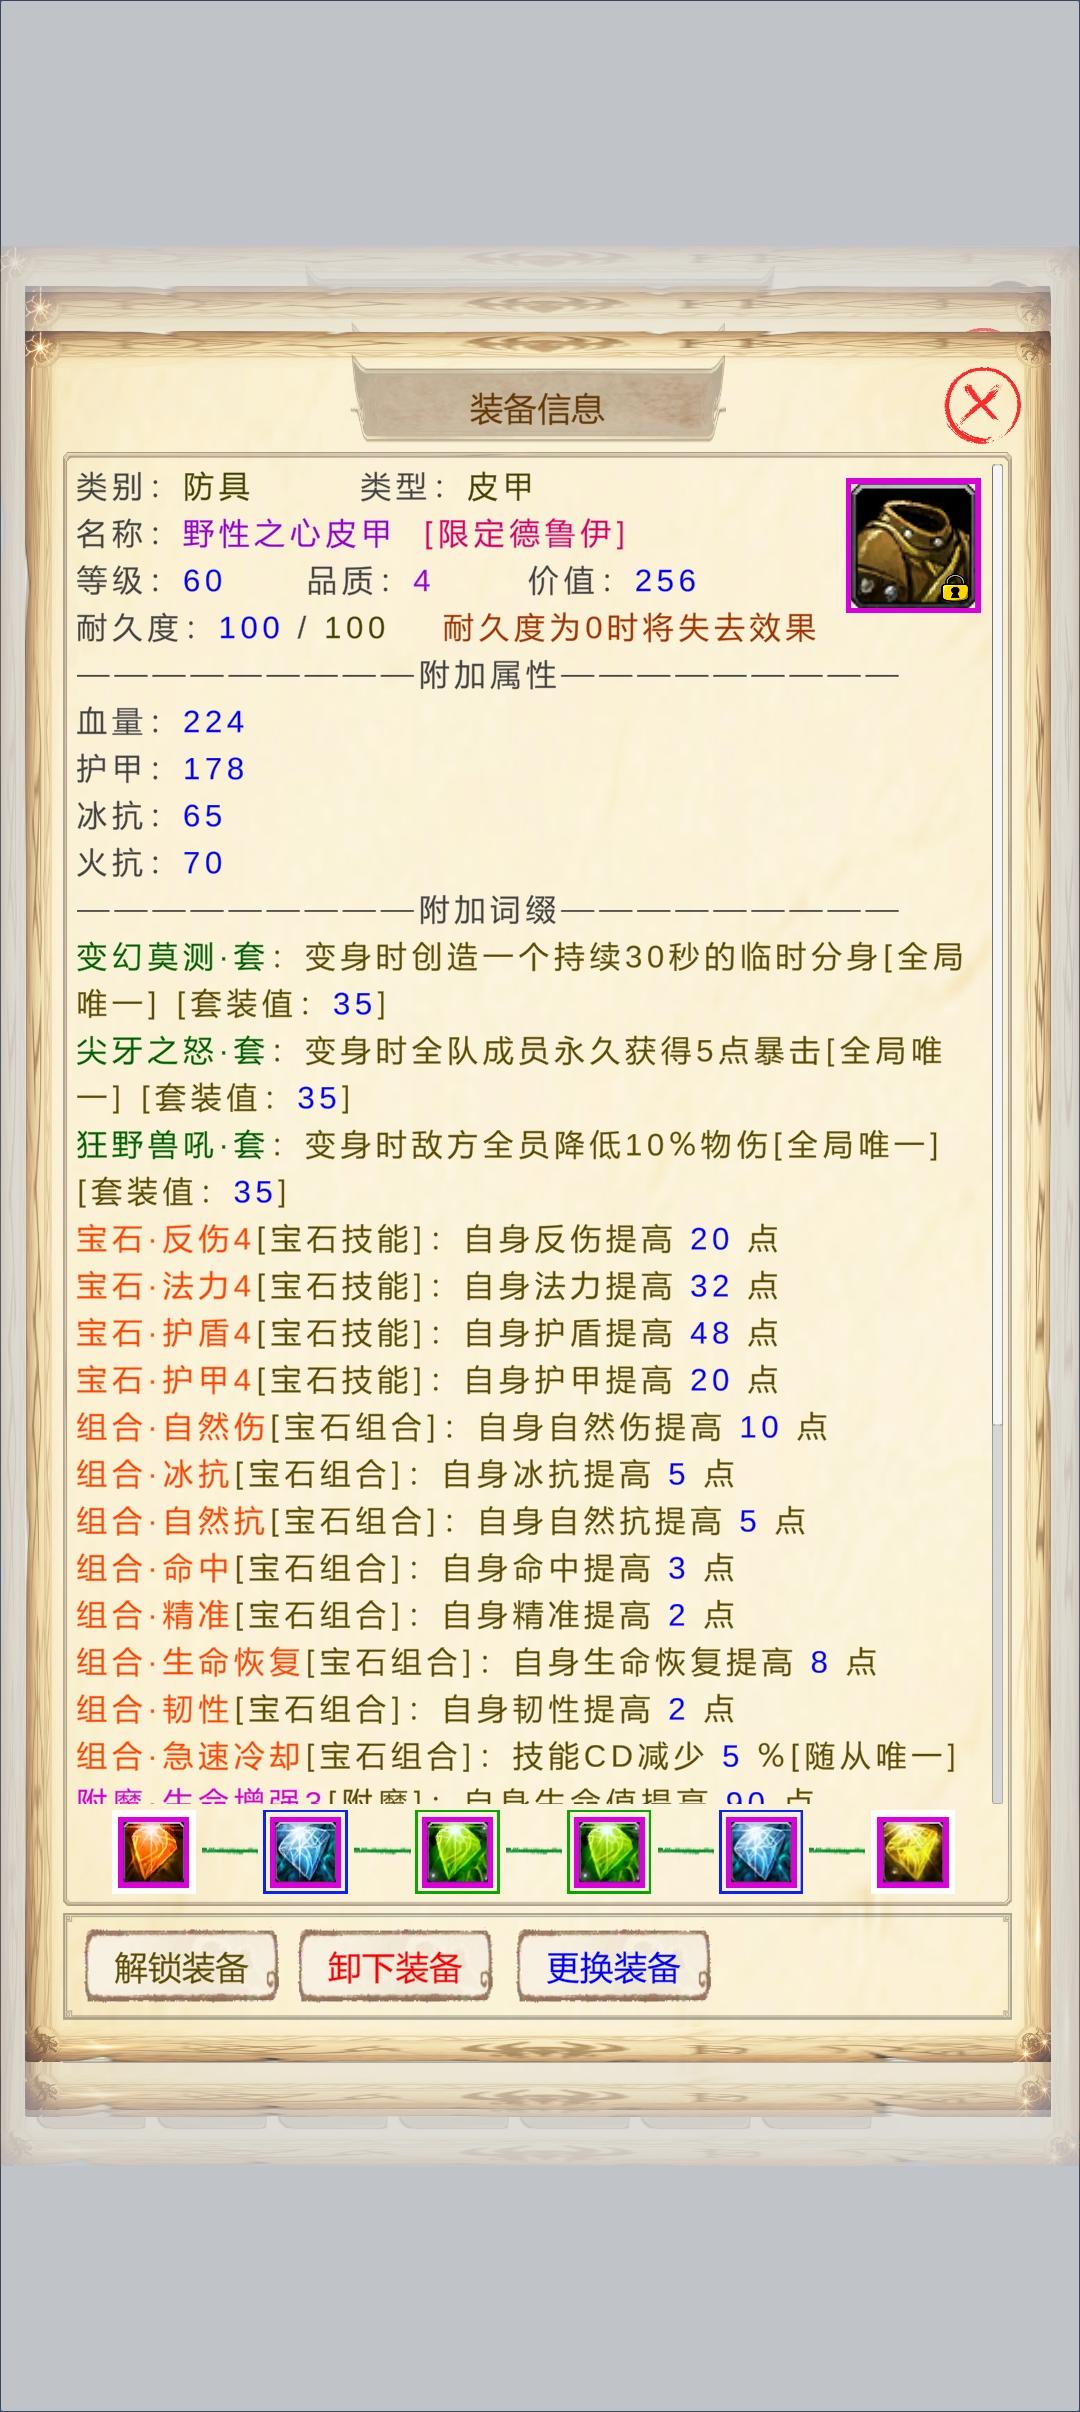 装备信息
类别：防具 类型：皮甲
名称：野性之心皮甲 [限定德鲁伊]
等级：60 品质：4 价值：256
耐久度：100 / 100 耐久度为0时将失去效果
—————————附加属性—————————
血量：224
护甲：178
冰抗：65
火抗：70
—————————附加词缀—————————
变幻莫测·套：变身时创造一个持续30秒的临时分身[全局
唯一] [套装值：35]
尖牙之怒·套：变身时全队成员永久获得5点暴击[全局唯
一] [套装值：35]
狂野兽吼·套：变身时敌方全员降低10%物伤[全局唯一]
[套装值：35]
宝石·反伤4[宝石技能]：自身反伤提高 20 点
宝石·法力4[宝石技能]：自身法力提高 32 点
宝石·护盾4[宝石技能]：自身护盾提高 48 点
宝石·护甲4[宝石技能]：自身护甲提高 20 点
组合·自然伤[宝石组合]：自身自然伤提高 10 点
组合·冰抗[宝石组合]：自身冰抗提高 5 点
组合·自然抗[宝石组合]：自身自然抗提高 5 点
组合·命中[宝石组合]：自身命中提高 3 点
组合·精准[宝石组合]：自身精准提高 2 点
组合·生命恢复[宝石组合]：自身生命恢复提高 8 点
组合·韧性[宝石组合]：自身韧性提高 2 点
组合·急速冷却[宝石组合]：技能CD减少 5 %[随从唯一]
附魔·生命增强3[附魔]：自身生命值提高 90 点
解锁装备 卸下装备 更换装备